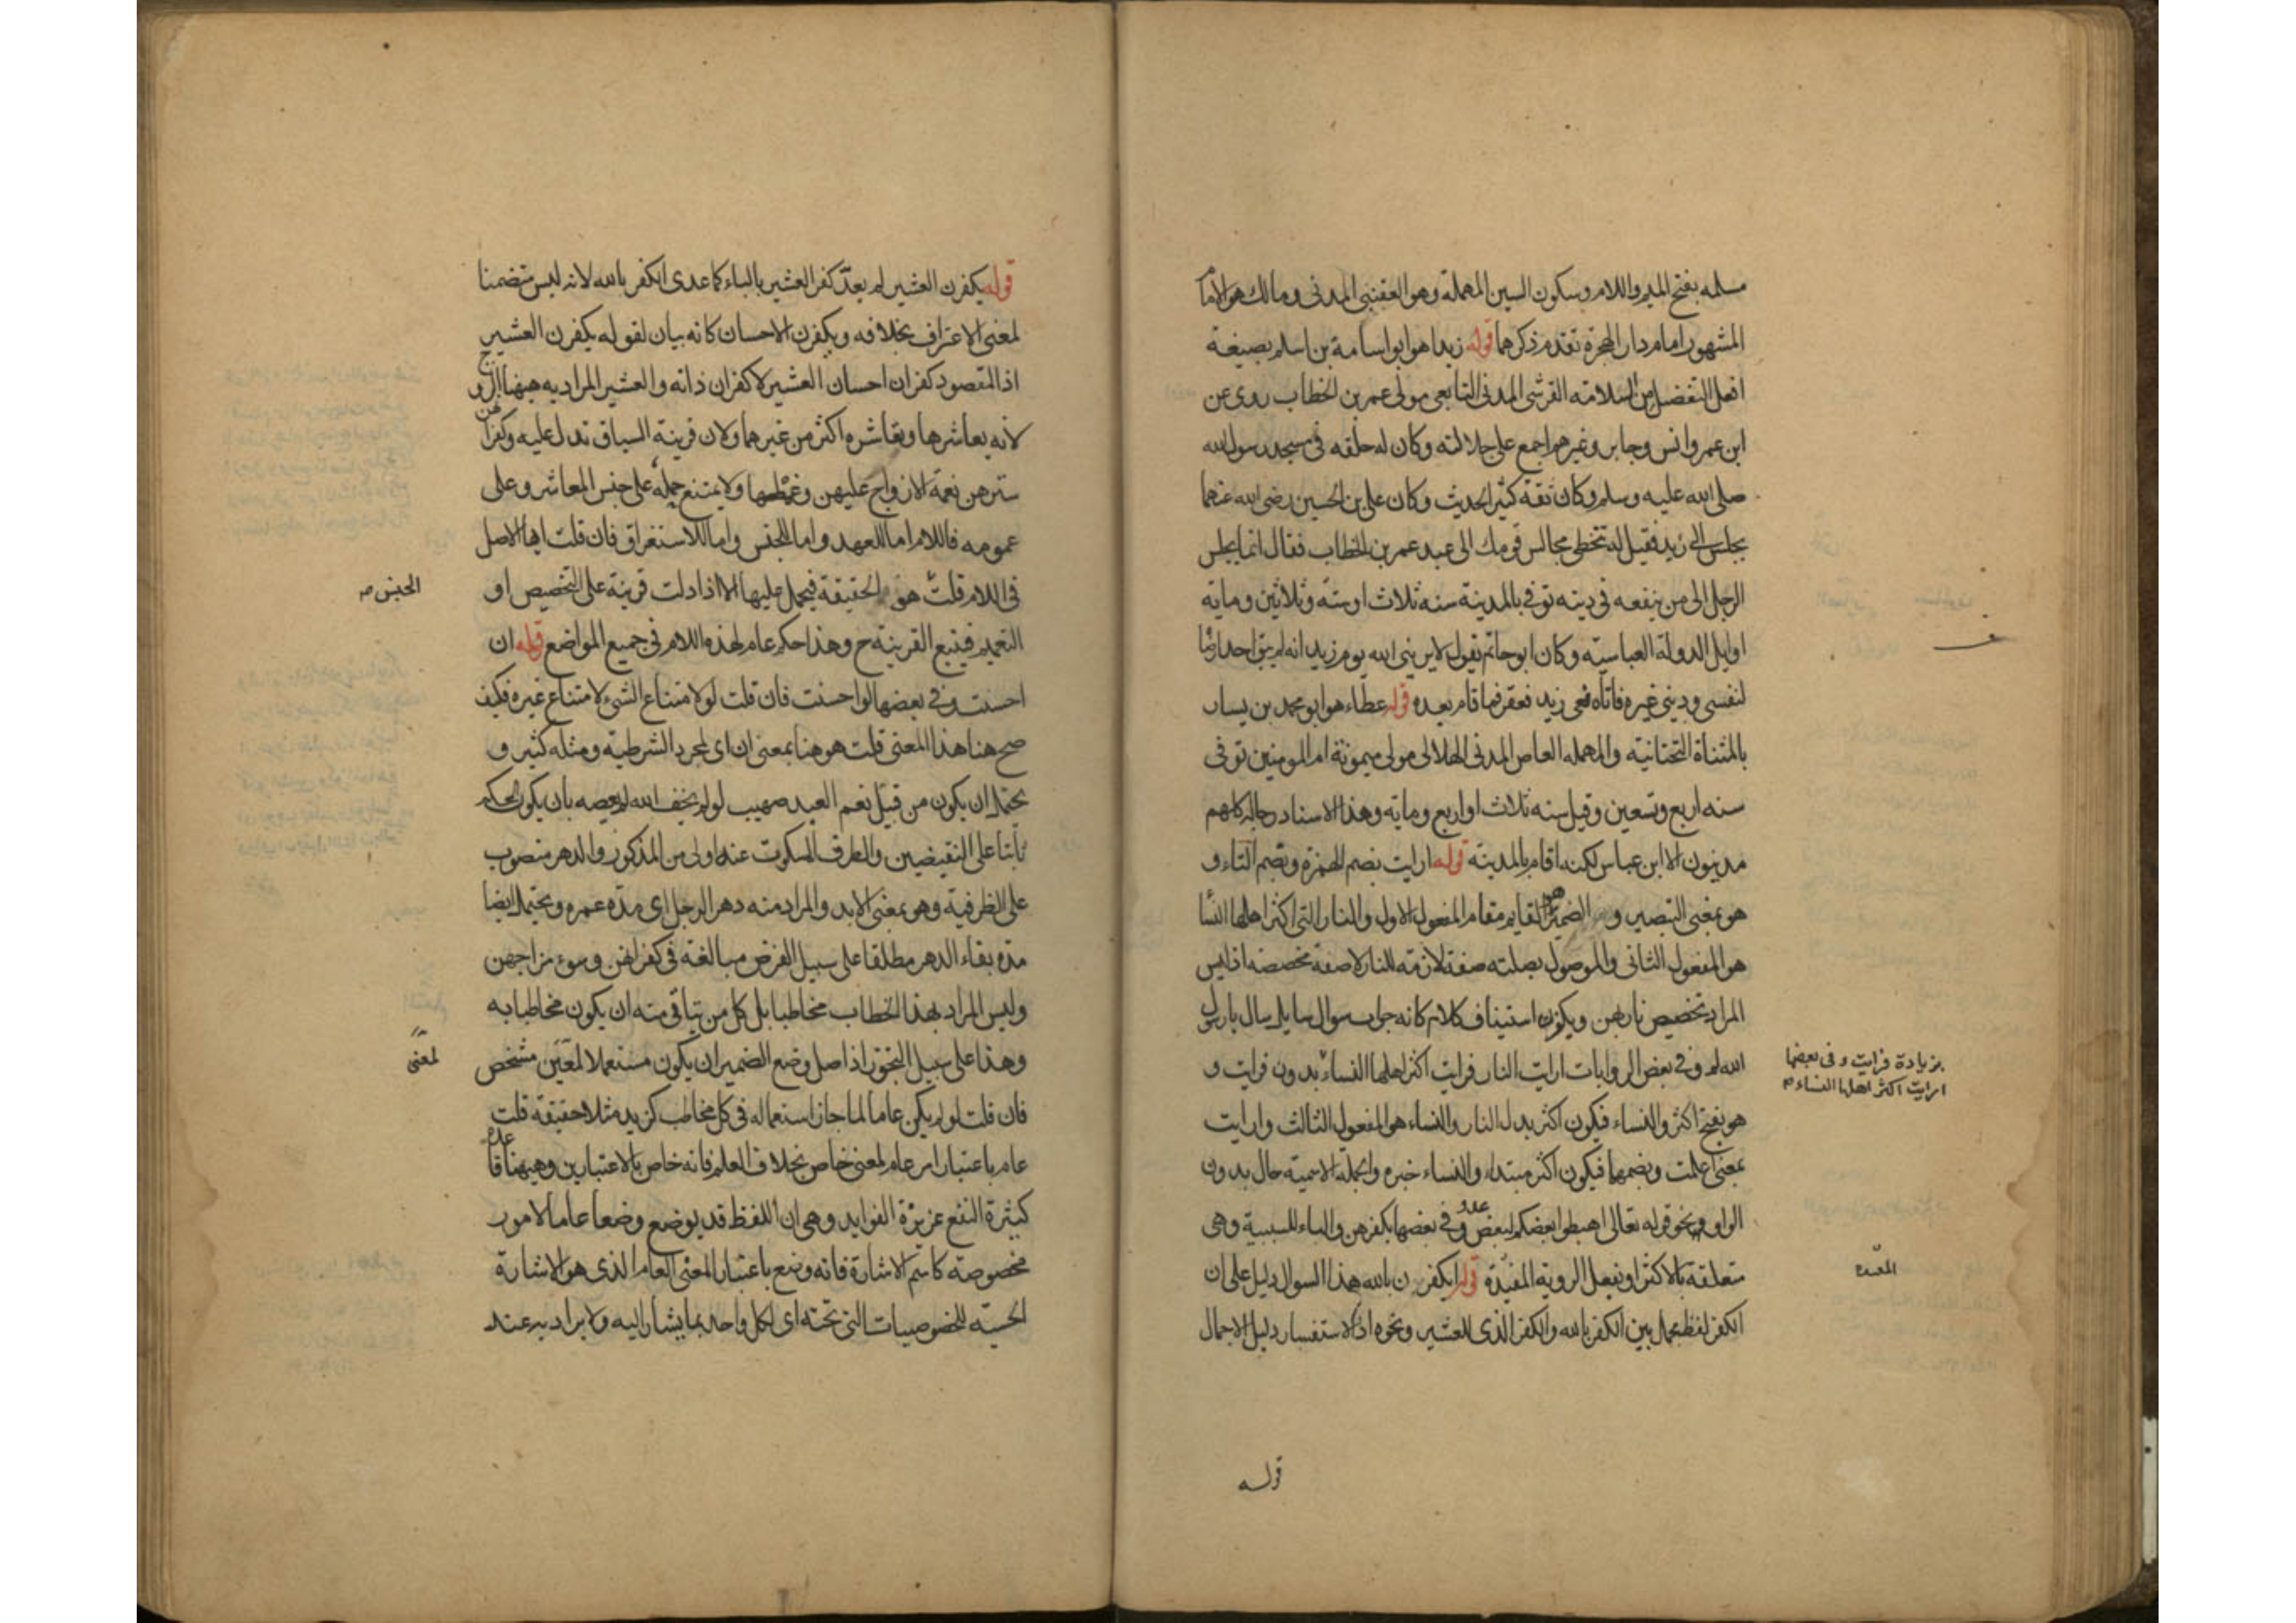 مسلمه بفتح الميم واللام وسكون السين المهملة وهو القعنبي المدني ومالك هو الامام
المشهور امام دار الهجرة تقدم ذكرهما قوله زيد اهو ابو اسامة بن اسلم بصيغة
افعل التفضيل من السلامة القرشي المدني التابعي مولى عمر بن الخطاب روى عن
ابن عمر وانس وجابر وغيرهم اجمع على جلالته وكان له حلقه في مسجد رسول الله
صلى الله عليه وسلم وكان ثقة كثير الحديث وكان علي بن الحسين رضي الله عنهما
يجلس الى زيد فقيل له تتخطى مجالس قومك الى عبد عمر بن الخطاب فقال انما يجلس
الرجل الى من ينفعه في دينه توفى بالمدينة سنه ثلاث اوسته وثلاثين وماية
اوايل الدولة العباسية وكان ابو حاتم يقول لا يريني الله يوم زيد انه لم يبق احد ارضا
لنفسي وديني غيره فاتاه نعى زيد فعقر فما قام بعده قوله عطاء هو ابو محمد بن يسار
بالمثناة التحتانية والمهمله العاص المدني الهلالى مولى ميمونة ام المومنين توفى
سنه اربع وتسعين وقيل سنه ثلاث او اربع وماية وهذا الاسناد رجاله كلهم
مدنيون الا ابن عباس لكنه اقام بالمدينة قوله ارايت بضم الهمزة وبضم التاء و
هو بمعنى التبصير و الضمير هو القايم مقام المفعول الاول والنار التي اكثر اهلها النسا
هو المفعول الثاني والموصول بصلته صفة لازمة للنار لا صفة مخصصه اذ ليس
المراد تخصيص نار بهن ويكون استيناف كلام كانه جواب سوال سايل سال يا رسول
الله لم وفي بعض الروايات ارايت النار فرايت اكثر اهلها النساء بدون فرايت و
بزيادة فرايت وفي بعضها
ارايت اكثر اهلها النساء
هو بفتح اكثر والنساء فيكون اكثر بدل النار والنساء هو المفعول الثالث وارايت
بمعنى اعلمت وبضمهما فيكون اكثر مبتداء والنساء خبره والجملة الاسمية حال بدون
الواو ونحو قوله تعالى اهبطوا بعضكم لبعض عدو وفي بعضها بكفرهن والباء للسببية وهي
متعلقة بالاكثر او بفعل الروية المقيدة قوله ايكفرن بالله هذا السوال دليل على ان
الكفر لفظ مجمل بين الكفر بالله والكفر الذي للعشير ونحوه اذ الاستفسار دليل الاجمال
قوله
قوله يكفرن العشير لم يعد كفر العشير بالباء كما عدى الكفر بالله لانه ليس متضمنا
لمعنى الاعتراف بخلافه ويكفرن الاحسان كانه بيان لقوله يكفرن العشير
اذ المقصود كفران احسان العشير لا كفران ذاته والعشير المراد به ههنا الزوج
لانه يعاشرها وتعاشره اكثر من غيرهما ولان قرينة السياق تدل عليه وكفرانهن
سترهن نعمة الازواج عليهن وغمطها ولا يمتنع حمله على جنس المعاشر وعلى
عمومه فاللام اما للعهد واما للجنس واما للاستغراق فان قلت ايها الاصل
في اللام قلت هو الحقيقة فيحمل عليها الا اذا دلت قرينة على التخصيص او
الجنس
التعميم فيتبع القرينة ح وهذا حكم عام لهذه اللام في جميع المواضع قوله ان
احسنت وفي بعضها لو احسنت فان قلت لو لامتناع الشيء لامتناع غيره فكيف
صح هنا هذا المعنى قلت هو هنا بمعنى ان اى لمجرد الشرطية ومثله كثير و
يحتمل ان يكون من قبيل نعم العبد صهيب لو لم يخف الله لم يعصه بان يكون الحكم
ثابتا على النقيضين والطرف المسكوت عنه اولى من المذكور والدهر منصوب
على الظرفية وهو بمعنى الابد والمراد منه دهر الرجل اى مدة عمره ويحتمل ايضا
مدة بقاء الدهر مطلقا على سبيل الفرض مبالغة في كفرانهن وسوء مزاجهن
وليس المراد بهذا الخطاب مخاطبا بل كل من يتاتى منه ان يكون مخاطبا به
وهذا على سبيل التجوز اذ اصل وضع الضمير ان يكون مستعملا لمعين مشخص
لمعنى
فان قلت لو لم يكن عاما لما جاز استعماله في كل مخاطب كزيد مثلا حقيقة قلت
عام باعتبار امر عام لمعنى خاص بخلاف العلم فانه خاص بالاعتبارين وههنا قاعده
كثيرة النفع عزيزة الفوايد وهي ان اللفظ قد يوضع وضعا عاما لامور
مخصوصة كاسم الاشارة فانه وضع باعتبار المعنى العام الذي هو الاشارة
الحسية للخصوصيات التي تحته اى لكل واحد مما يشار اليه ولا يراد به عند